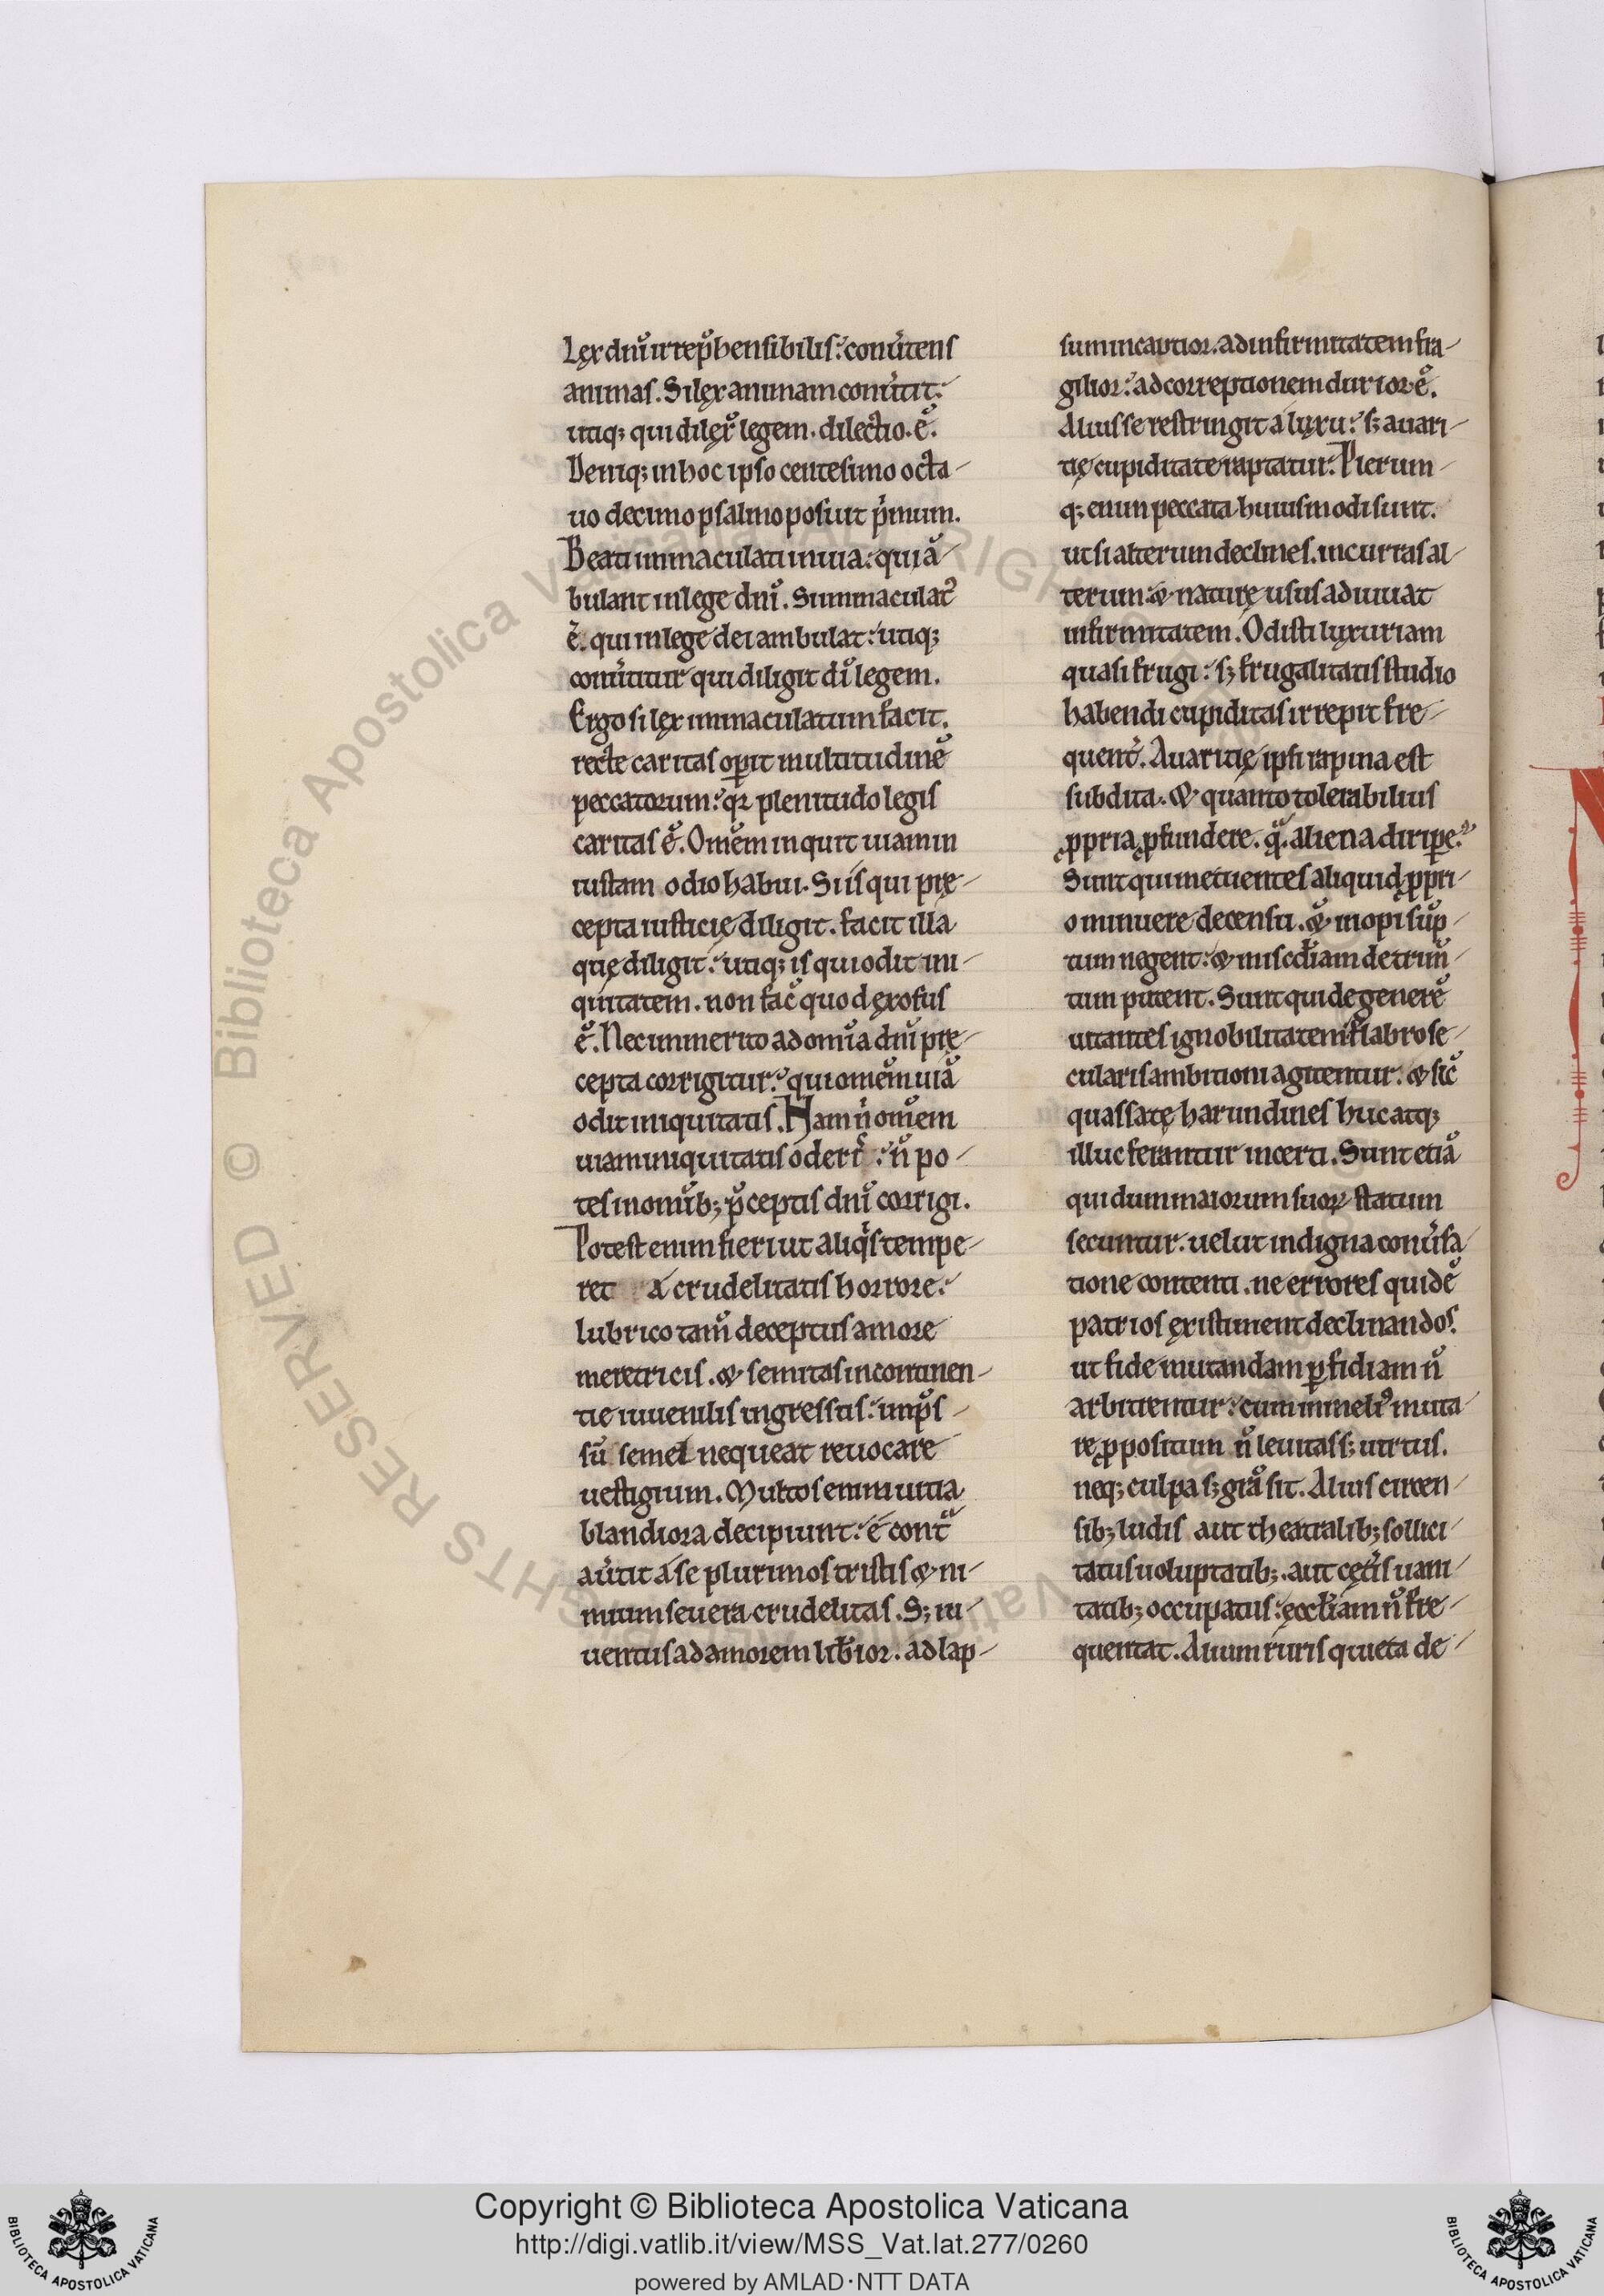 Lęx dnı̄ irrep̄hensibilis. conũtens
animas. Si lęx animam conũtit.
utiq; qui dilęx̄ legem. dilectio. ē.
Deniq; in hoc ipso centesimo octa-
uo decimo psalmo posuit p̄mum.
Beati immaculati in uia. qui ā-
bulant in lege dnı̄. Si immaculat᾽
ē. qui in lege dei ambulat. utiq;
conũtitur qui diligit dı̄ legem.
Ergo si lęx immaculatum facit.
recte caritas op̲it multitudinē
peccatorum. qꝛ plenitudo legis
caritas ē. Omēm inquit uiam in
iustam odio habui. Si is qui pre-
cepta iusticię diligit. facit illa
quę diligit. utiq; is qui odit ini-
quitatem. non fac̄ quod ęxosus
ē. Nec immerito ad omı̄a dnı̄ pre-
cepta corrigitur. qui omēm uiā
odit iniquitatis. Nam n̄ omēm
uiam iniquitatis oder̄. n̄ po-
tes in omı̄b; p̄ceptis dnı̄ corrigi.
Potest enim fieri ut aliq̄s tempe-
ret a crudelitatis horrore.
lubrico tam̄ deceptus amore
meretricis. & semitas incontinen-
tie iuuenilis ingressus. imp̄s-
sū semel nequeat reuocare
uestigium. Multos enim uitia
blandiora decipiunt. e contᵃ
aũtit a se plurimos tristis & ni-
mium seuera crudelitas. S; iu-
uentus ad amorem lib̄ior. ad lap-
sum incautior. ad infirmitatem fra-
gilior. ad correptionem durior. ē.
Alius se restringit a lųxu. s; auari-
tię cupiditate raptatur. Plerum-
q; enim peccata huiusmodi sunt.
ut si alterum declines. incurras al-
terum. & naturę usus adiuuat
infirmitatem. Odisti luxuriam
quasi frugi. s; frugalitatis studio
habendi cupiditas irrepit fre-
quent̄. Auaritię ipsi rapina est
subdita. & quanto tolerabilius
ꝓpria ꝓfundere. qᵃ. aliena dirip̲e.
Sunt qui metuentes aliquid ꝓpri-
o minuere de censu. & inopi sūp-
tum negent. & misc̄diam detrim̄-
tum putent. Sunt qui degenerē
uitantes ignobilitatem flabro se-
cularis ambitioni agitentur. & sic̄
quassatę harundines huc atq;
illuc ferantur incerti. Sunt etiā
qui dum maiorum suoꝝ statum
secuntur. uelut indigna conũsa-
tione contenti. ne errores quidē
patrios ęxistiment declinandos.
ut fide mutandam p̲fidiam n̄
arbitrentur. cum in meli᾽ muta-
re ꝓpositum n̄ leuitas s; uirtus.
neq; culpa s; grā sit. Alius circen-
sib; ludis aut theatralib; sollici-
tatus uoluptatib;. aut cęt̄is uani-
tatib; occupatus. ęcclīam n̄ fre-
quentat. Alium ruris quieta de-
© Biblioteca Apostolica Vaticana ALL RIGHTS RESERVED
Copyright © Biblioteca Apostolica Vaticana
http://digi.vatlib.it/view/MSS_Vat.lat.277/0260
powered by AMLAD·NTT DATA
BIBLIOTECA APOSTOLICA VATICANA
BIBLIOTECA APOSTOLICA VATICANA